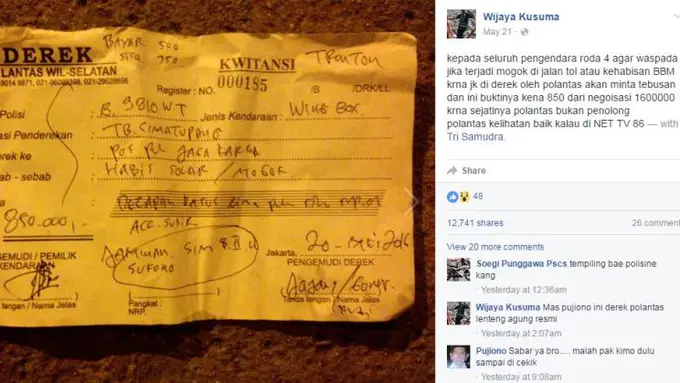 DEREK
LANTAS WIL-SELATAN
BAYAR 500
SISA 350
KWITANSI
TRONTON
Register : NO. 000195 /B /DRK/LL
Polisi : B. 9810 WT Jenis Kendaraan : WING BOX
Penderekan : TB. SIMATUPANG
erek ke : POS PU JAGAKARSA
ab - sebab : HABIS SOLAR / MOGOK
a 850.000,-
DELAPAN RATUS LIMA PULUH
JAMINAN SIM B II U
Jakarta, 20 - MEI 2016
GEMUDI / PEMILIK
KENDARAAN
PENGEMUDI DEREK
tangan / Nama Jelas
Pangkat :
NRP.
Tanda tangan / Nama Jelas
Wijaya Kusuma
May 21 ·
kepada seluruh pengendara roda 4 agar waspada
jika terjadi mogok di jalan tol atau kehabisan BBM
krna jk di derek oleh polantas akan minta tebusan
dan ini buktinya kena 850 dari negoisasi 1600000
krna sejatinya polantas bukan penolong
polantas kelihatan baik kalau di NET TV 86 — with
Tri Samudra.
Share
48
12,741 shares
26 comment
View 20 more comments
Soegi Punggawa Pscs templing bae polisine
kang
· Yesterday at 12:36am
Wijaya Kusuma Mas pujiono ini derek polantas
lenteng agung resmi
· Yesterday at 2:07am
Pujiono Sabar ya bro..... malah pak kirno dulu
sampai di cekik
· Yesterday at 9:08am